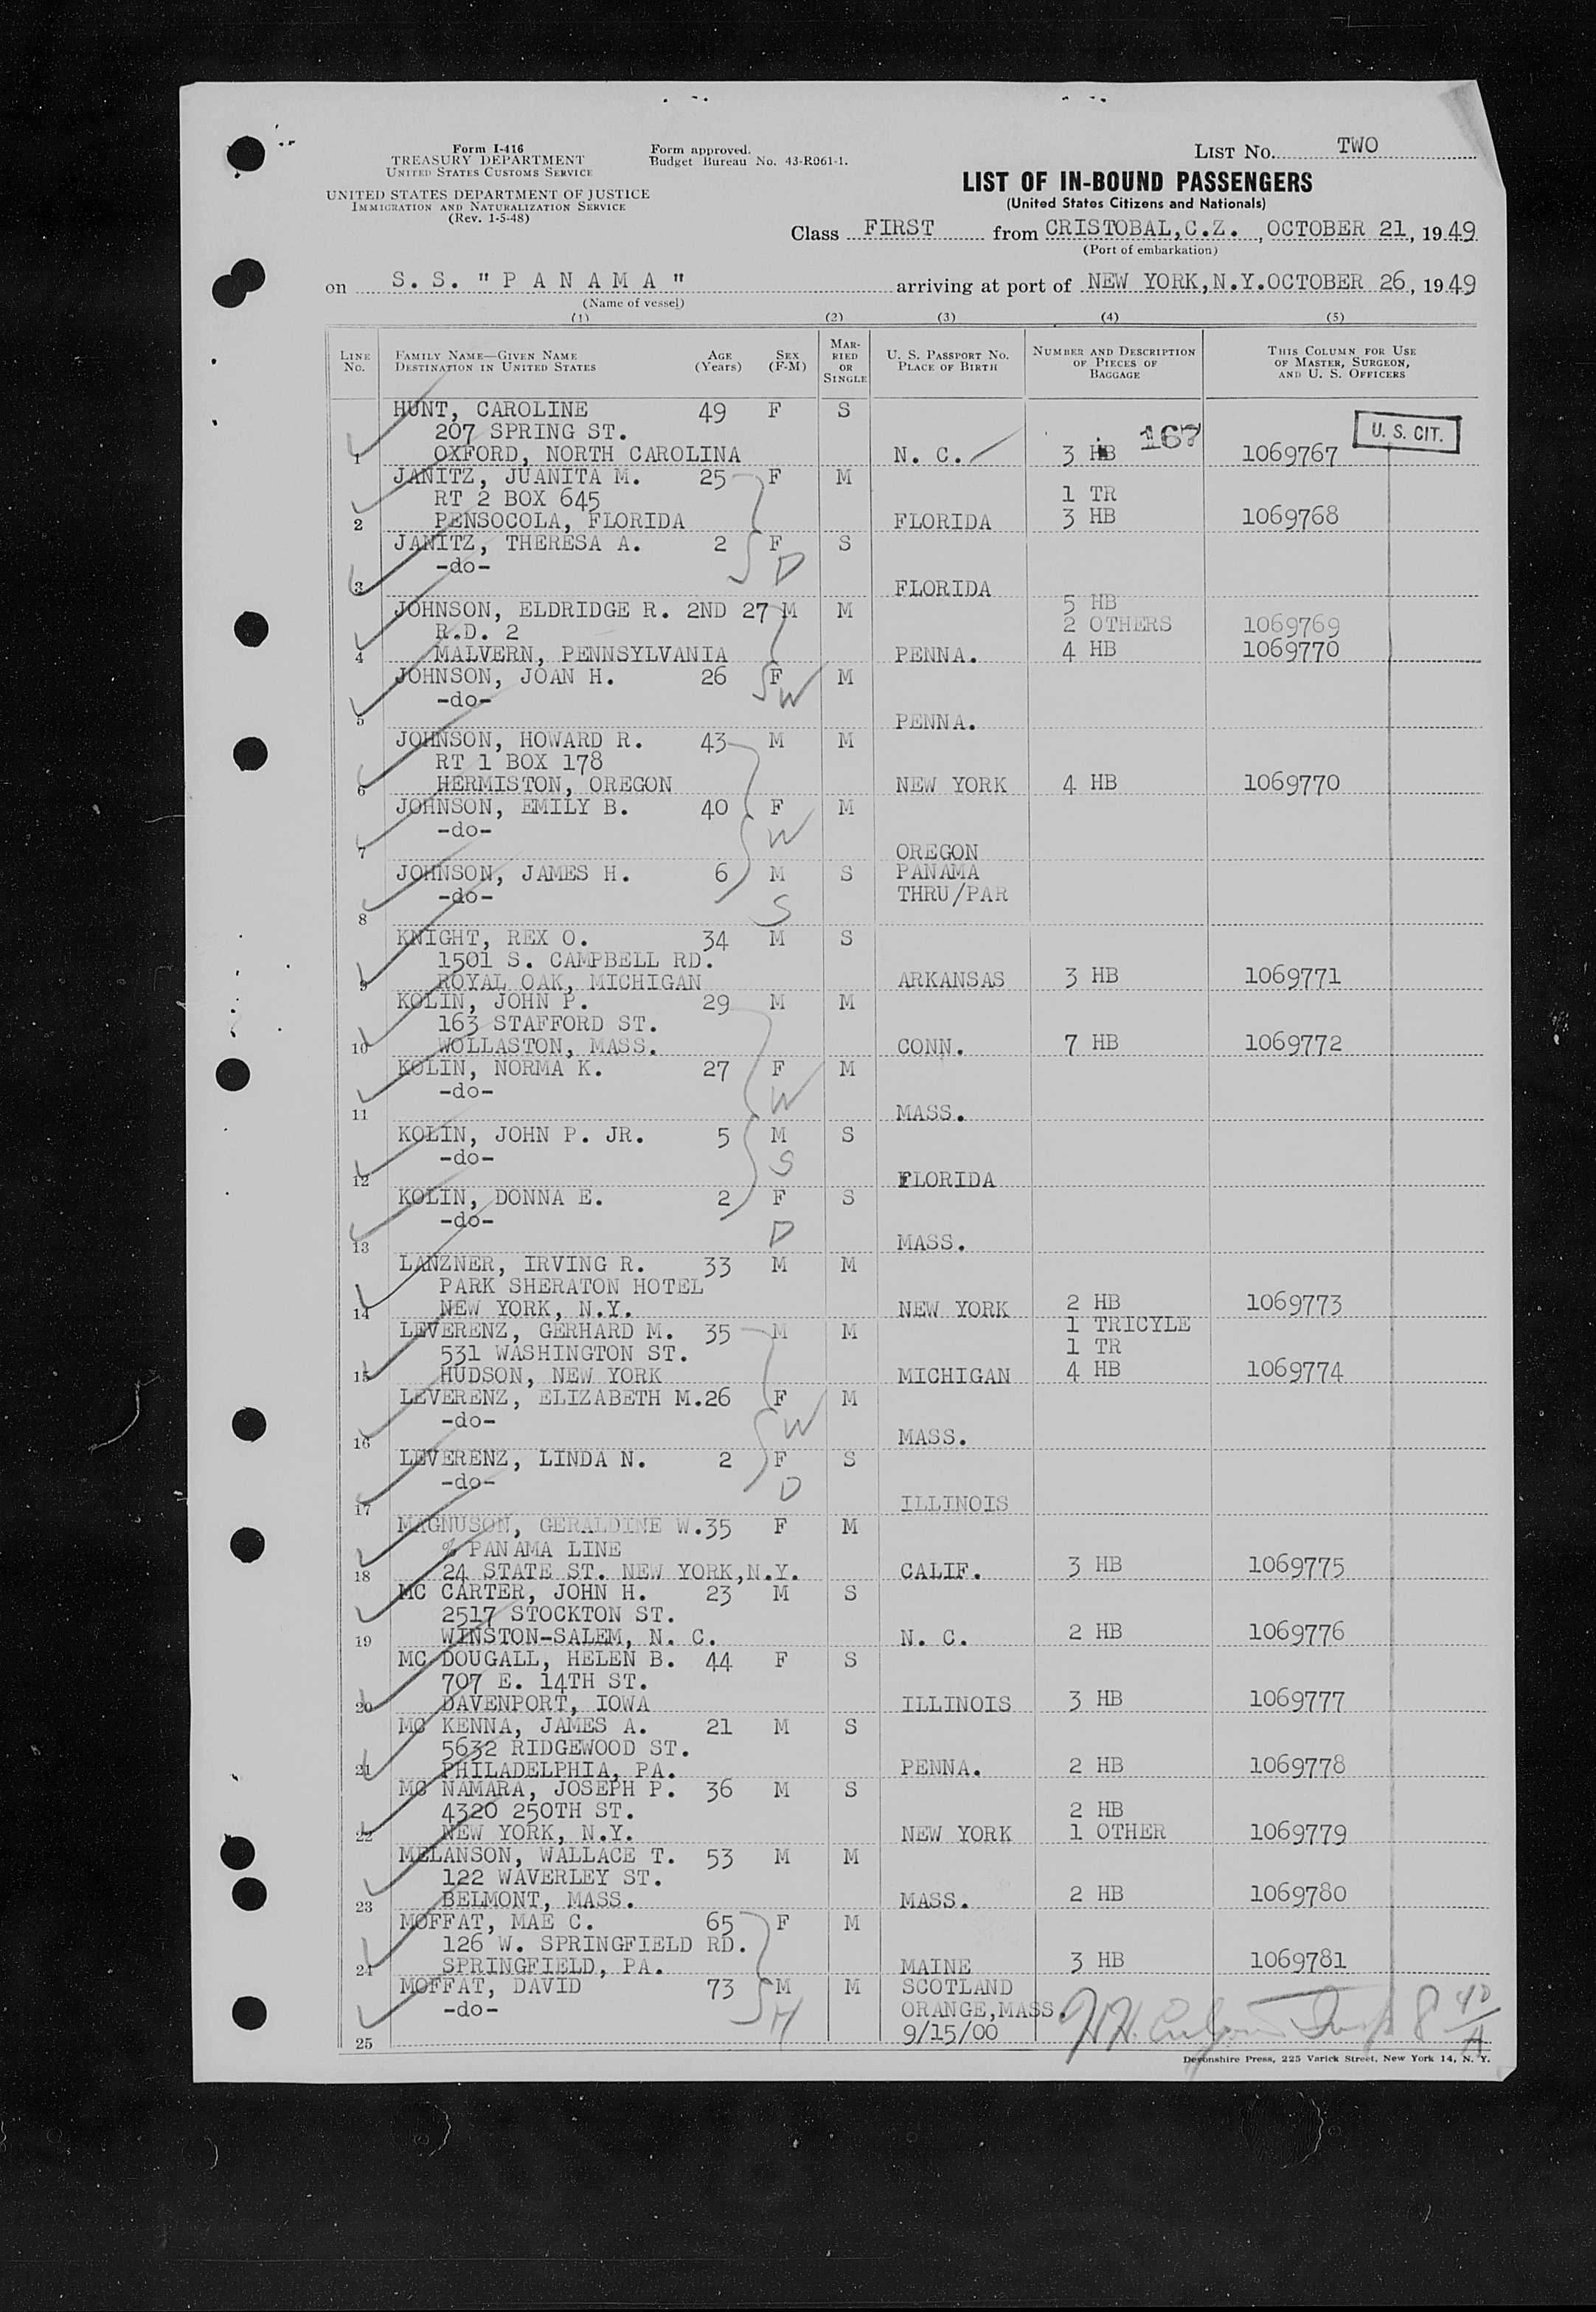 Form I-416
TREASURY DEPARTMENT
UNITED STATES CUSTOMS SERVICE
UNITED STATES DEPARTMENT OF JUSTICE
IMMIGRATION AND NATURALIZATION SERVICE
(Rev. 1-5-48)
Form approved.
Budget Bureau No. 43-R061-1.
LIST NO. TWO
LIST OF IN-BOUND PASSENGERS
(United States Citizens and Nationals)
Class FIRST from CRISTOBAL,C.Z. , OCTOBER 21, 1949
(Port of embarkation)
on S. S. "P A N A M A" arriving at port of NEW YORK,N.Y. OCTOBER 26, 1949
(Name of vessel)
(1) (2) (3) (4) (5)
LINE NO. FAMILY NAME—GIVEN NAME DESTINATION IN UNITED STATES AGE (Years) SEX (F-M) MARRIED OR SINGLE U. S. PASSPORT NO. PLACE OF BIRTH NUMBER AND DESCRIPTION OF PIECES OF BAGGAGE THIS COLUMN FOR USE OF MASTER, SURGEON, AND U. S. OFFICERS
HUNT, CAROLINE 49 F S
207 SPRING ST. 167 U. S. CIT.
1 OXFORD, NORTH CAROLINA N. C. 3 HB 1069767
JANITZ, JUANITA M. 25 F M
RT 2 BOX 645 1 TR
2 PENSOCOLA, FLORIDA FLORIDA 3 HB 1069768
JANITZ, THERESA A. 2 F S
-do- D
3 FLORIDA
5 HB
JOHNSON, ELDRIDGE R. 2ND 27 M M
R.D. 2 2 OTHERS 1069769
4 MALVERN, PENNSYLVANIA PENNA. 4 HB 1069770
JOHNSON, JOAN H. 26 F M
-do- W
5 PENNA.
JOHNSON, HOWARD R. 43 M M
RT 1 BOX 178
6 HERMISTON, OREGON NEW YORK 4 HB 1069770
JOHNSON, EMILY B. 40 F M
-do- W
7 OREGON
JOHNSON, JAMES H. 6 M S PANAMA
-do- THRU/PAR
8 S
KNIGHT, REX O. 34 M S
1501 S. CAMPBELL RD.
9 ROYAL OAK, MICHIGAN ARKANSAS 3 HB 1069771
KOLIN, JOHN P. 29 M M
163 STAFFORD ST.
10 WOLLASTON, MASS. CONN. 7 HB 1069772
KOLIN, NORMA K. 27 F M
-do- W
11 MASS.
KOLIN, JOHN P. JR. 5 M S
-do- S
12 FLORIDA
KOLIN, DONNA E. 2 F S
-do- D
13 MASS.
LANZNER, IRVING R. 33 M M
PARK SHERATON HOTEL
14 NEW YORK, N.Y. NEW YORK 2 HB 1069773
LEVERENZ, GERHARD M. 35 M M 1 TRICYLE
531 WASHINGTON ST. 1 TR
15 HUDSON, NEW YORK MICHIGAN 4 HB 1069774
LEVERENZ, ELIZABETH M.26 F M
-do- W
16 MASS.
LEVERENZ, LINDA N. 2 F S
-do- D
17 ILLINOIS
MAGNUSON, GERALDINE W.35 F M
% PANAMA LINE
18 24 STATE ST. NEW YORK,N.Y. CALIF. 3 HB 1069775
MC CARTER, JOHN H. 23 M S
2517 STOCKTON ST.
19 WINSTON-SALEM, N. C. N. C. 2 HB 1069776
MC DOUGALL, HELEN B. 44 F S
707 E. 14TH ST.
20 DAVENPORT, IOWA ILLINOIS 3 HB 1069777
MC KENNA, JAMES A. 21 M S
5632 RIDGEWOOD ST.
21 PHILADELPHIA, PA. PENNA. 2 HB 1069778
MC NAMARA, JOSEPH P. 36 M S
4320 250TH ST. 2 HB
22 NEW YORK, N.Y. NEW YORK 1 OTHER 1069779
MELANSON, WALLACE T. 53 M M
122 WAVERLEY ST.
23 BELMONT, MASS. MASS. 2 HB 1069780
MOFFAT, MAE C. 65 F M
126 W. SPRINGFIELD RD.
24 SPRINGFIELD, PA. MAINE 3 HB 1069781
MOFFAT, DAVID 73 M M SCOTLAND
-do- H ORANGE,MASS.
25 9/15/00
Devonshire Press, 225 Varick Street, New York 14, N. Y.